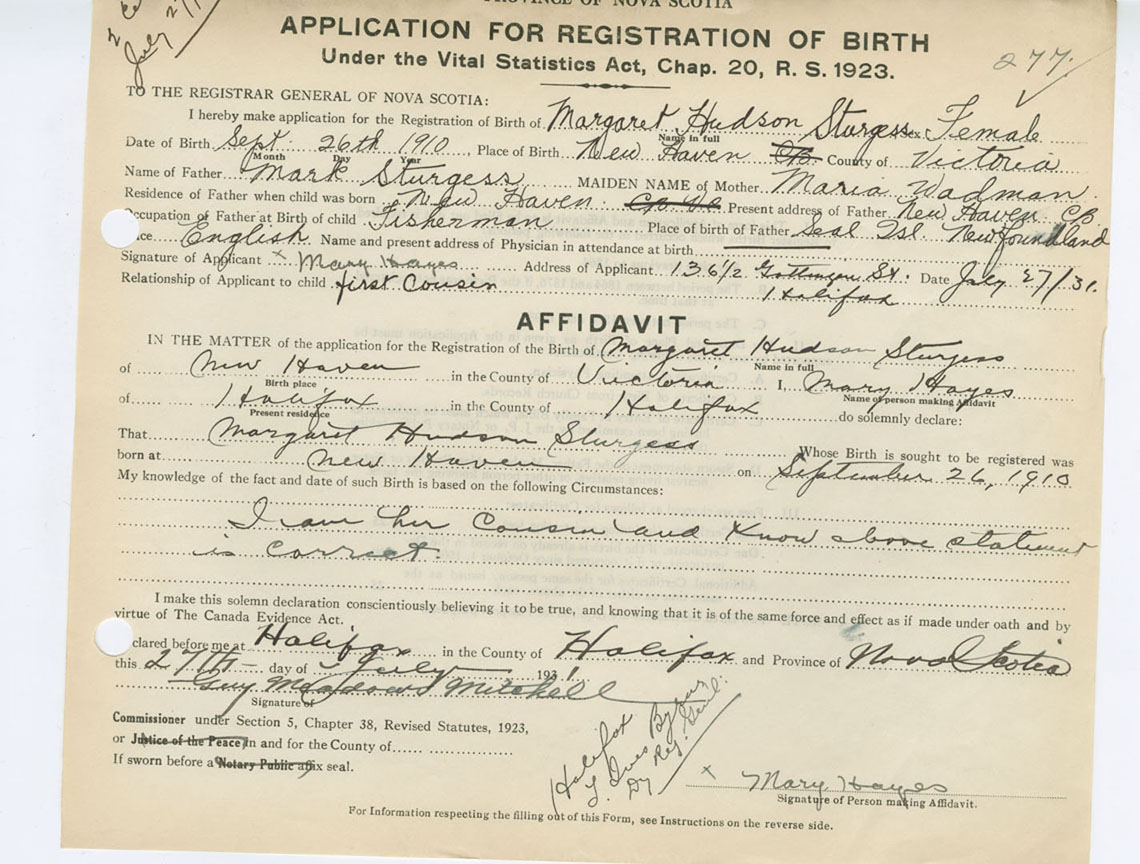 PROVINCE OF NOVA SCOTIA
APPLICATION FOR REGISTRATION OF BIRTH
277
Under the Vital Statistics Act, Chap. 20, R. S. 1923.
July 27/
TO THE REGISTRAR GENERAL OF NOVA SCOTIA:
I hereby make application for the Registration of Birth of Margaret Hudson Sturgess Sex Female
Name in full
Date of Birth Sept. 26th 1910, Place of Birth New Haven CB County of Victoria
Month Day Year
Name of Father Mark Sturgess MAIDEN NAME of Mother Maria Wadman
Residence of Father when child was born New Haven Present address of Father New Haven CB
Occupation of Father at Birth of child Fisherman Place of birth of Father Seal Isl. Newfoundland
English Name and present address of Physician in attendance at birth
Signature of Applicant x Mary Hayes Address of Applicant 136 1/2 Gottingen St. Date July 27/31.
Relationship of Applicant to child first Cousin Halifax
AFFIDAVIT
IN THE MATTER of the application for the Registration of the Birth of Margaret Hudson Sturgess
Name in full
of New Haven in the County of Victoria I, Mary Hayes
Birth place Name of person making Affidavit
of Halifax in the County of Halifax do solemnly declare:
Present residence
That Margaret Hudson Sturgess Whose Birth is sought to be registered was
born at New Haven on September 26, 1910
My knowledge of the fact and date of such Birth is based on the following Circumstances:
I am her Cousin and know above statement
is correct.
I make this solemn declaration conscientiously believing it to be true, and knowing that it is of the same force and effect as if made under oath and by
virtue of The Canada Evidence Act.
clared before me at Halifax in the County of Halifax and Province of Nova Scotia
this 27th day of July 1931.
Guy Meadows Mitchell
Signature of
Commissioner under Section 5, Chapter 38, Revised Statutes, 1923,
or Justice of the Peace in and for the County of
If sworn before a Notary Public affix seal.
Halifax
Dy Reg. Genl.
x Mary Hayes
Signature of Person making Affidavit.
For Information respecting the filling out of this Form, see Instructions on the reverse side.